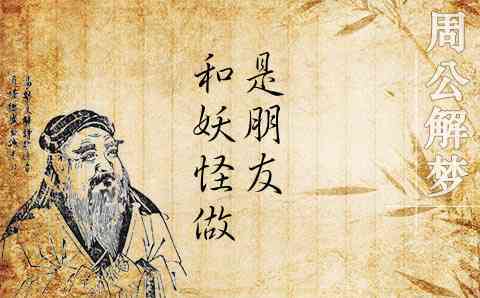 周公解梦
是朋友
和妖怪做